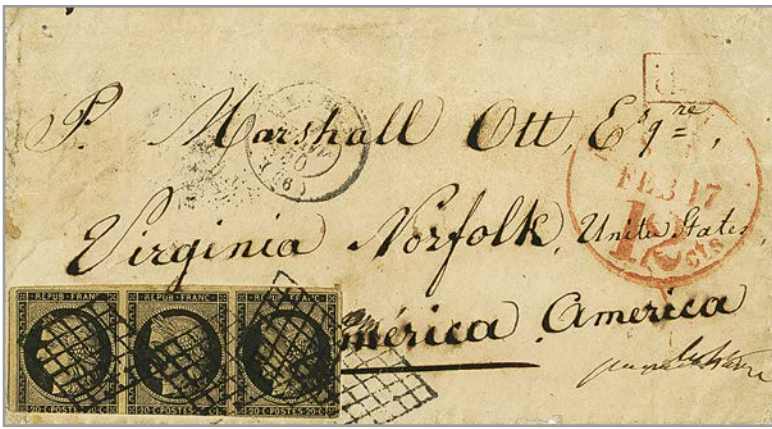 P. Marshall Ott, Esqre,
FEB 17
Virginia Norfolk, Unite States,
12 cts
América America
REPUB FRANC REPUB FRANC REPUB FRANC
20 C POSTES 20 C 20 C POSTES 20 C 20 C POSTES 20 C